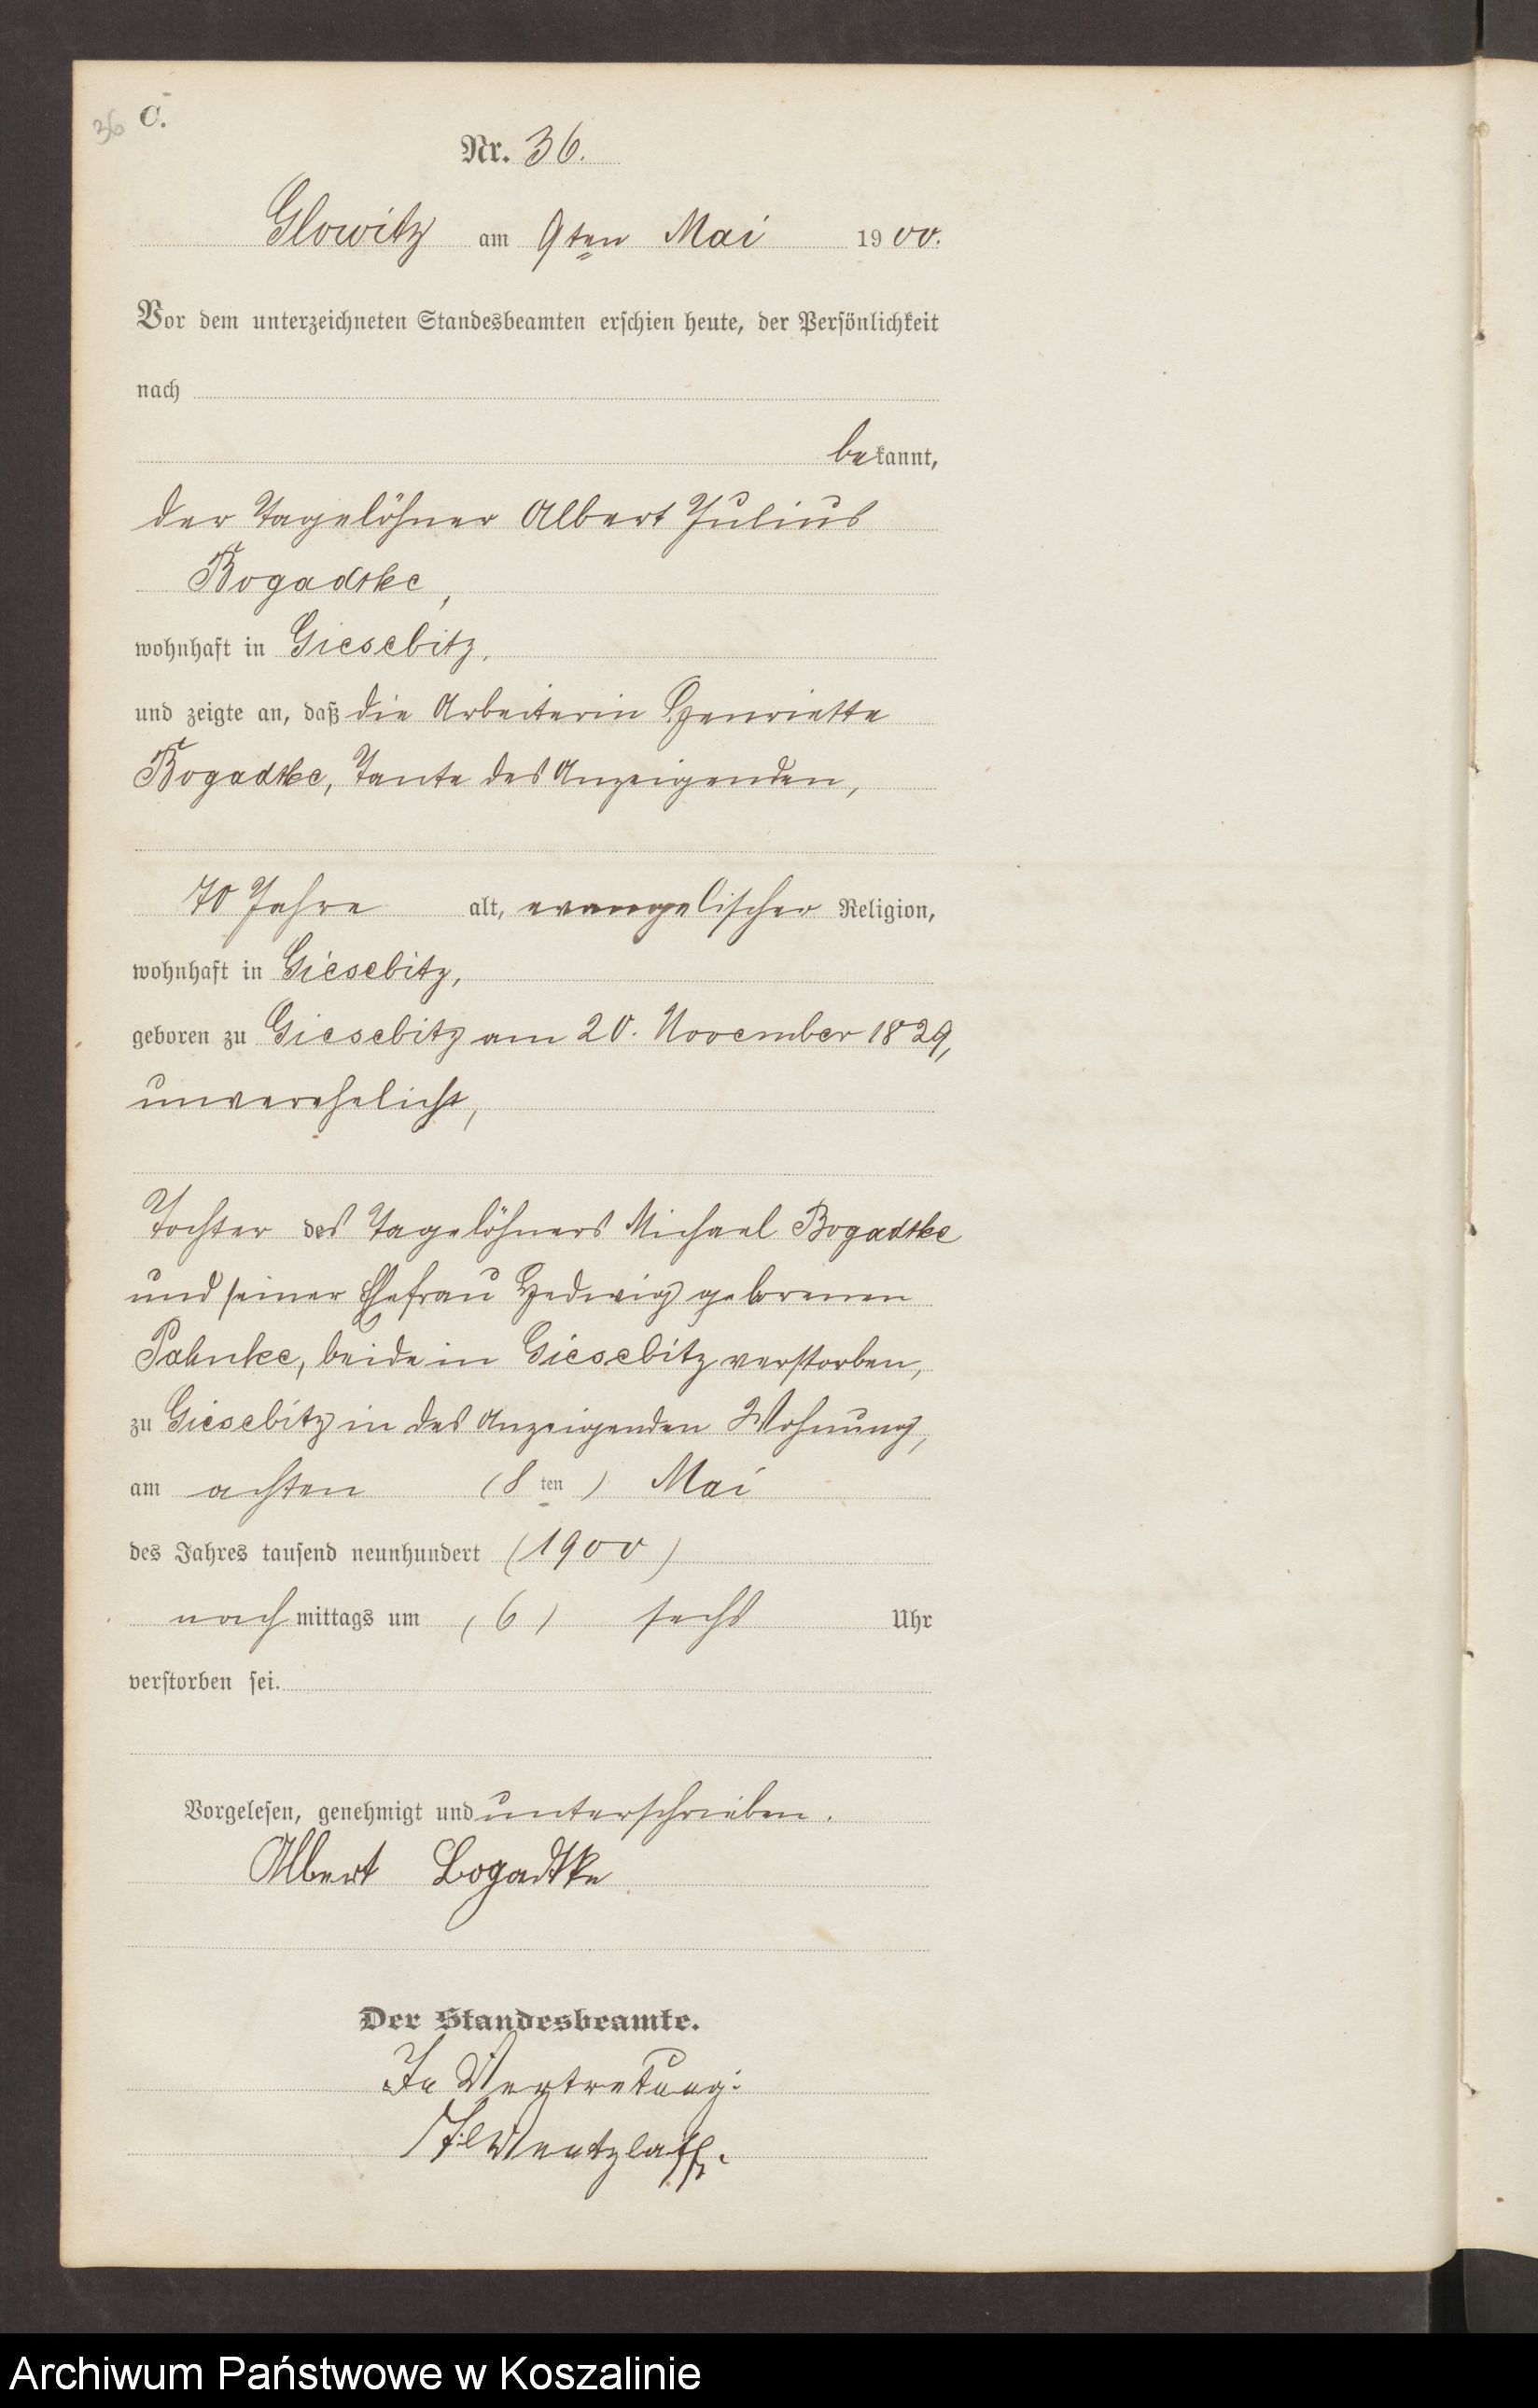 36 C.
Nr. 36.
Glowitz am 9ten Mai 1900.
Vor dem unterzeichneten Standesbeamten erschien heute, der Persönlichkeit
nach
bekannt,
der Tagelöhner Albert Julius
Bogadtke,
wohnhaft in Giesebitz,
und zeigte an, daß die Arbeiterin Henriette
Bogadtke, Tante des Anzeigenden,
70 Jahre alt, evangelischer Religion,
wohnhaft in Giesebitz,
geboren zu Giesebitz am 20. November 1829,
unverehelicht,
Tochter des Tagelöhners Michael Bogadtke
und seiner Ehefrau Hedwig geborenen
Pahnke, beide in Giesebitz verstorben,
zu Giesebitz in des Anzeigenden Wohnung,
am achten (8ten) Mai
des Jahres tausend neunhundert (1900)
nachmittags um (6) sechs Uhr
verstorben sei.
Vorgelesen, genehmigt und unterschrieben.
Albert Bogadtke
Der Standesbeamte.
In Vertretung:
Wentzlaff.
Archiwum Państwowe w Koszalinie